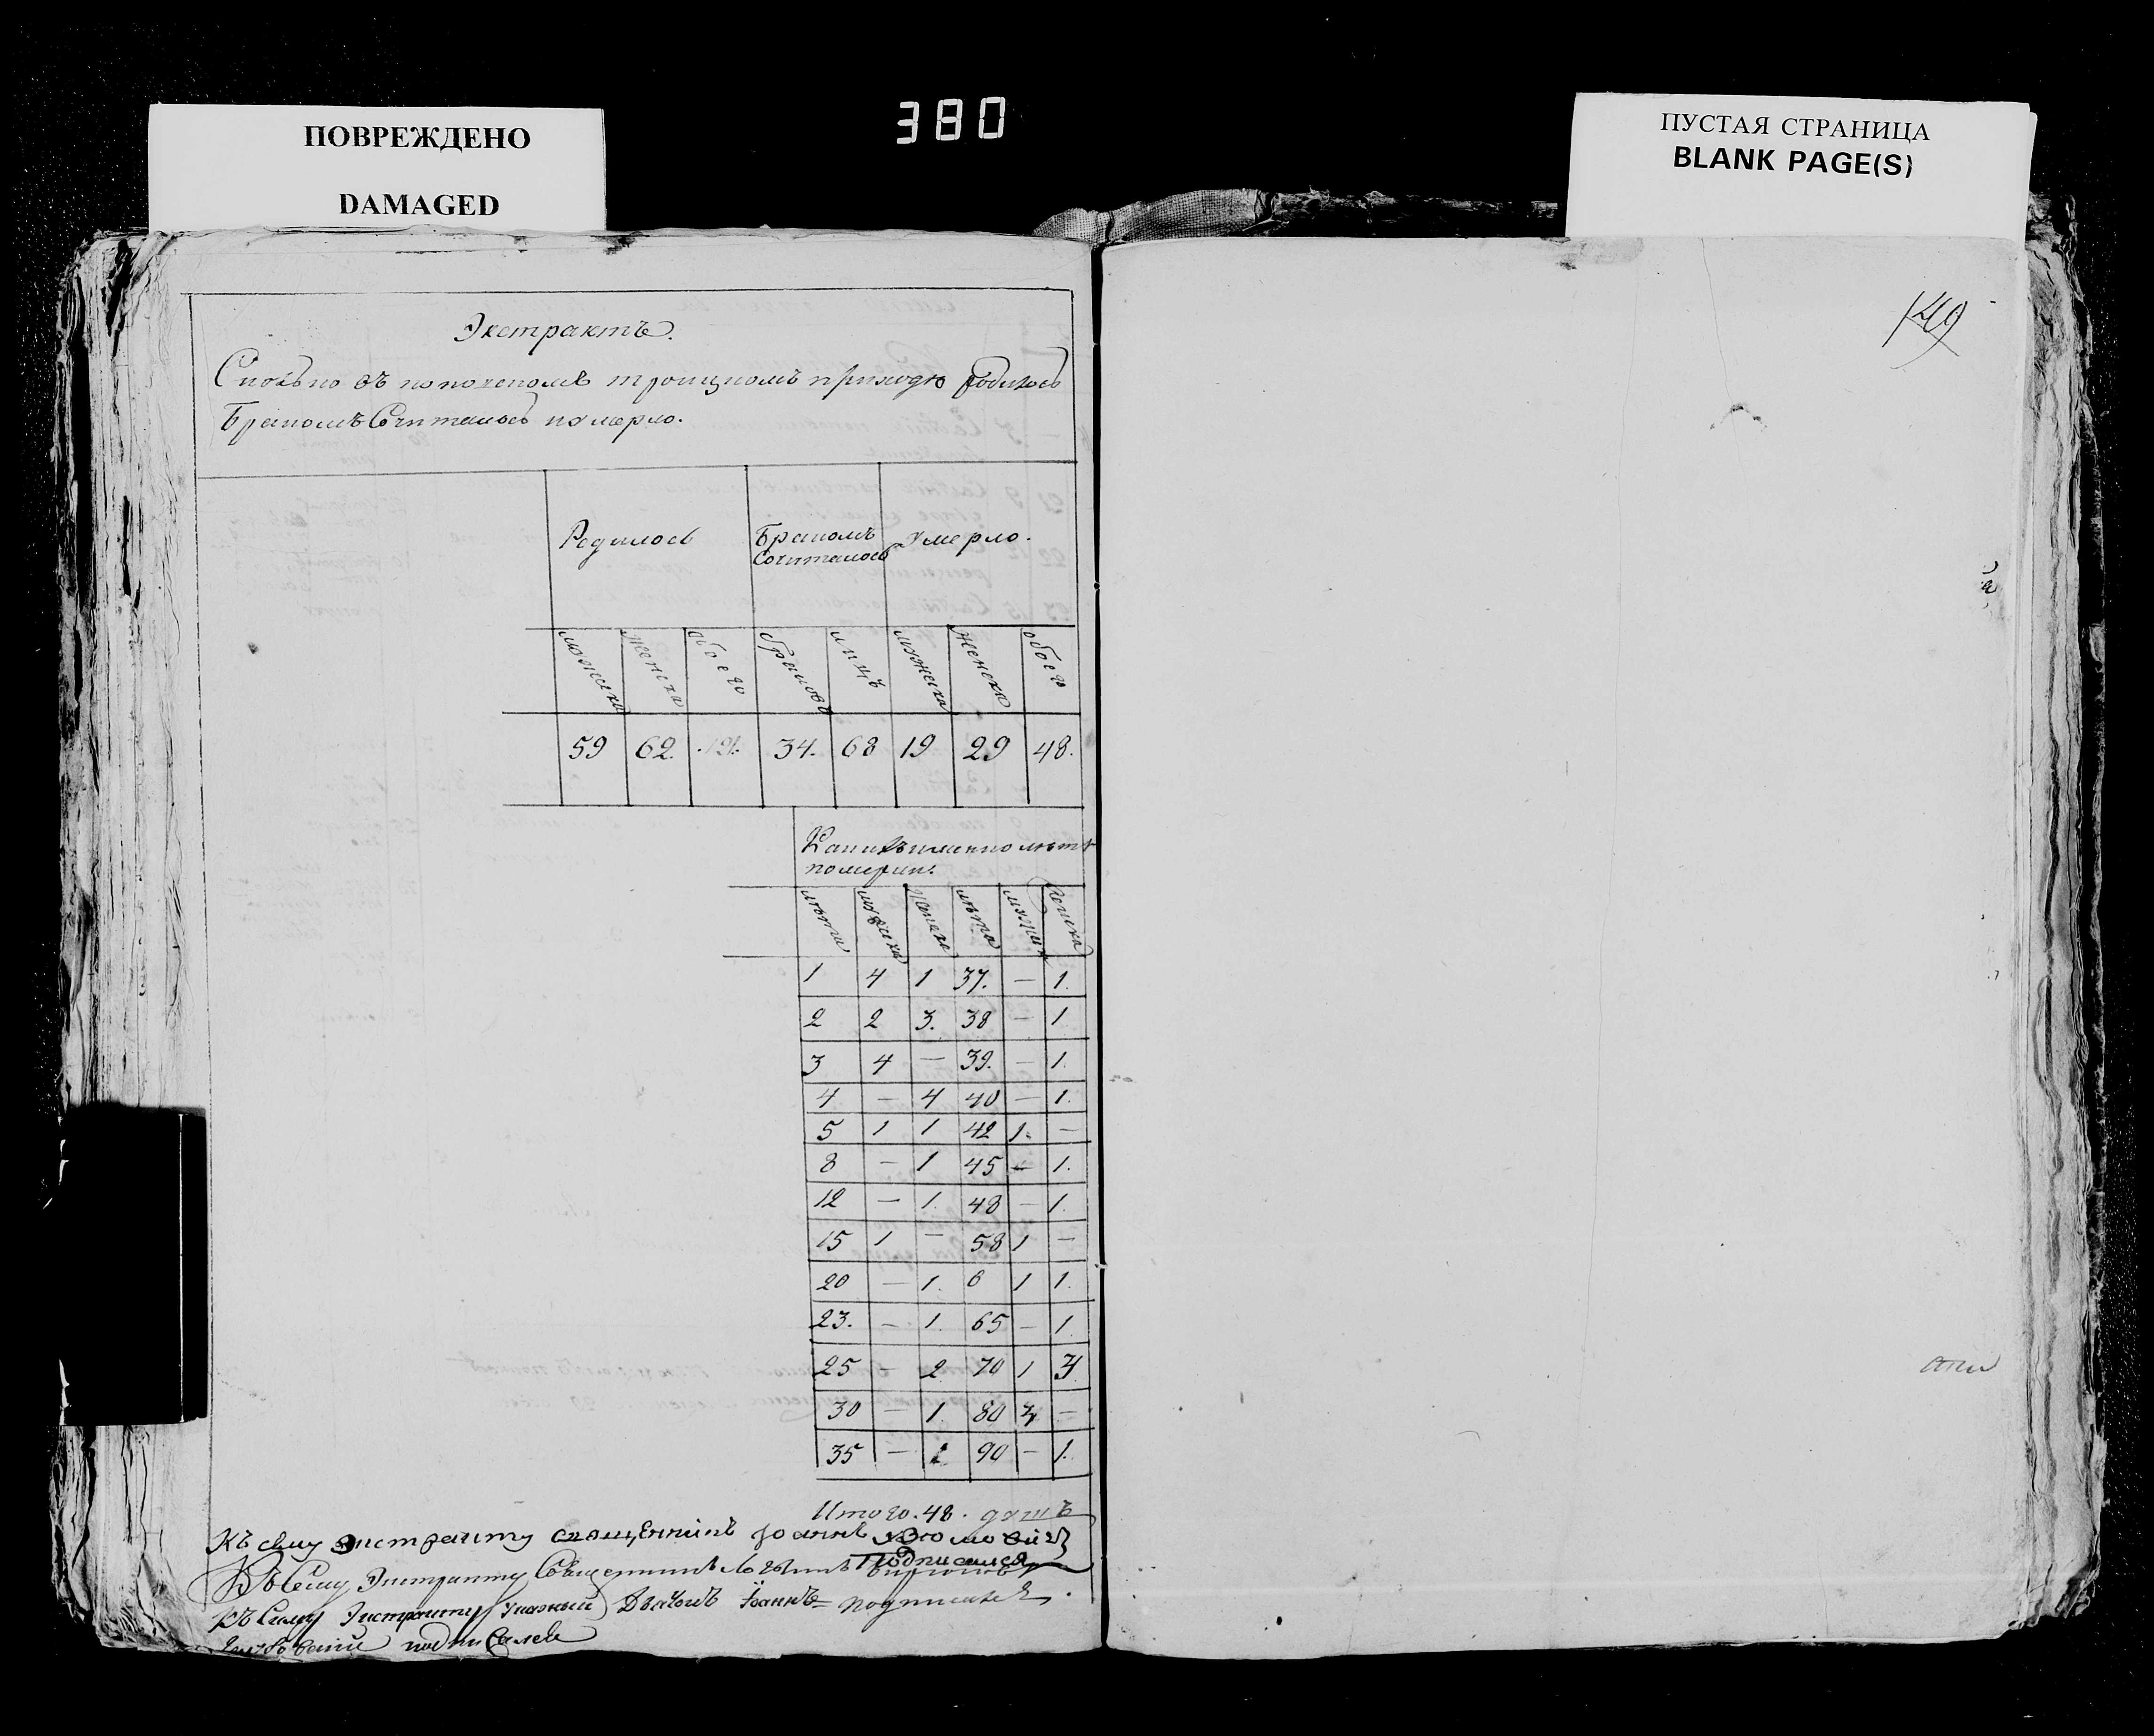 380
ПОВРЕЖДЕНО
DAMAGED
ПУСТАЯ СТРАНИЦА
BLANK PAGE(S)
149
Экстрактъ.
Сколько въ троицкомъ приходѣ родилось
Бракомъ Сочталось померло.
Родилось Бракомъ Умерло.
Сочталось
мужеска женска обоего браковъ лицъ мужеска женска обоего
59 62. 121. 34. 68 19 29 48.
лѣтъ
померли.
лѣта мужеска женска лѣта мужеск женска
1 4 1 37. — 1.
2 2 3. 38 — 1
3 4 — 39. — 1.
4 — 4 40 — 1.
5 1 1 42 1. —
8 — 1 45 — 1.
12 — 1. 48 — 1.
15 1 — 58 1 —
20 — 1. 6 1 1.
23. — 1. 65 — 1.
25 — 2. 70 1 3
30 — 1. 80 3 —
35 — 1 90 — 1.
Итого. 48. душъ
Къ сему экстракту священникъ Іоаннъ
Подписался
Къ Сему Экстракту Священникъ
Къ Сему Экстракту указный Дьячокъ Іоаннъ подписался.
подписался